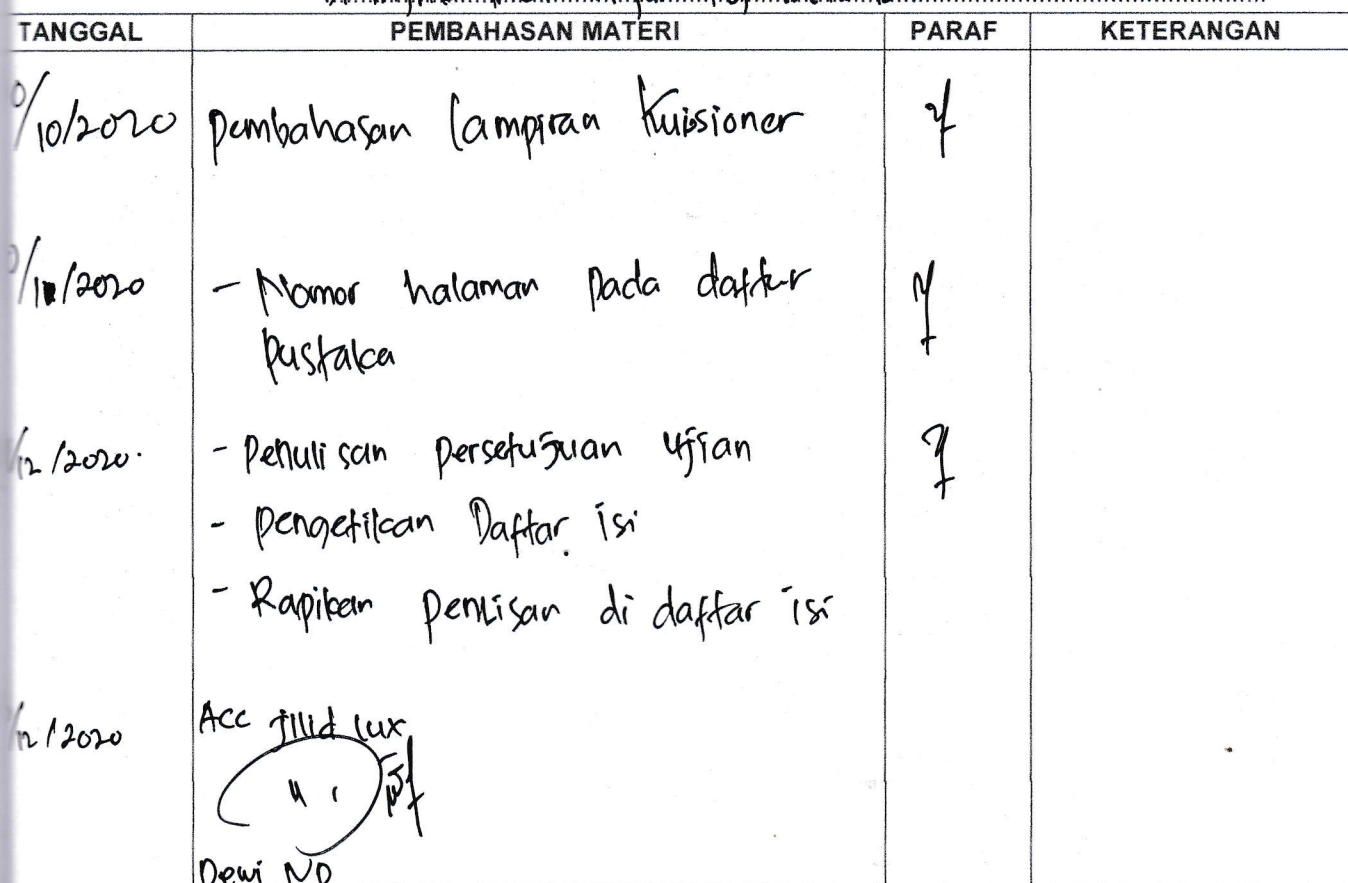 TANGGAL PEMBAHASAN MATERI PARAF KETERANGAN
/10/2020 Pembahasan Lampiran Kuisioner
/2020 - Nomor halaman pada daftar
Pustaka
/12/2020. - Penulisan Persetujuan Ujian
- Pengetikan Daftar isi
- Rapikan Penlisan di daftar isi
/12/2020 Acc jilid lux
Dewi NP